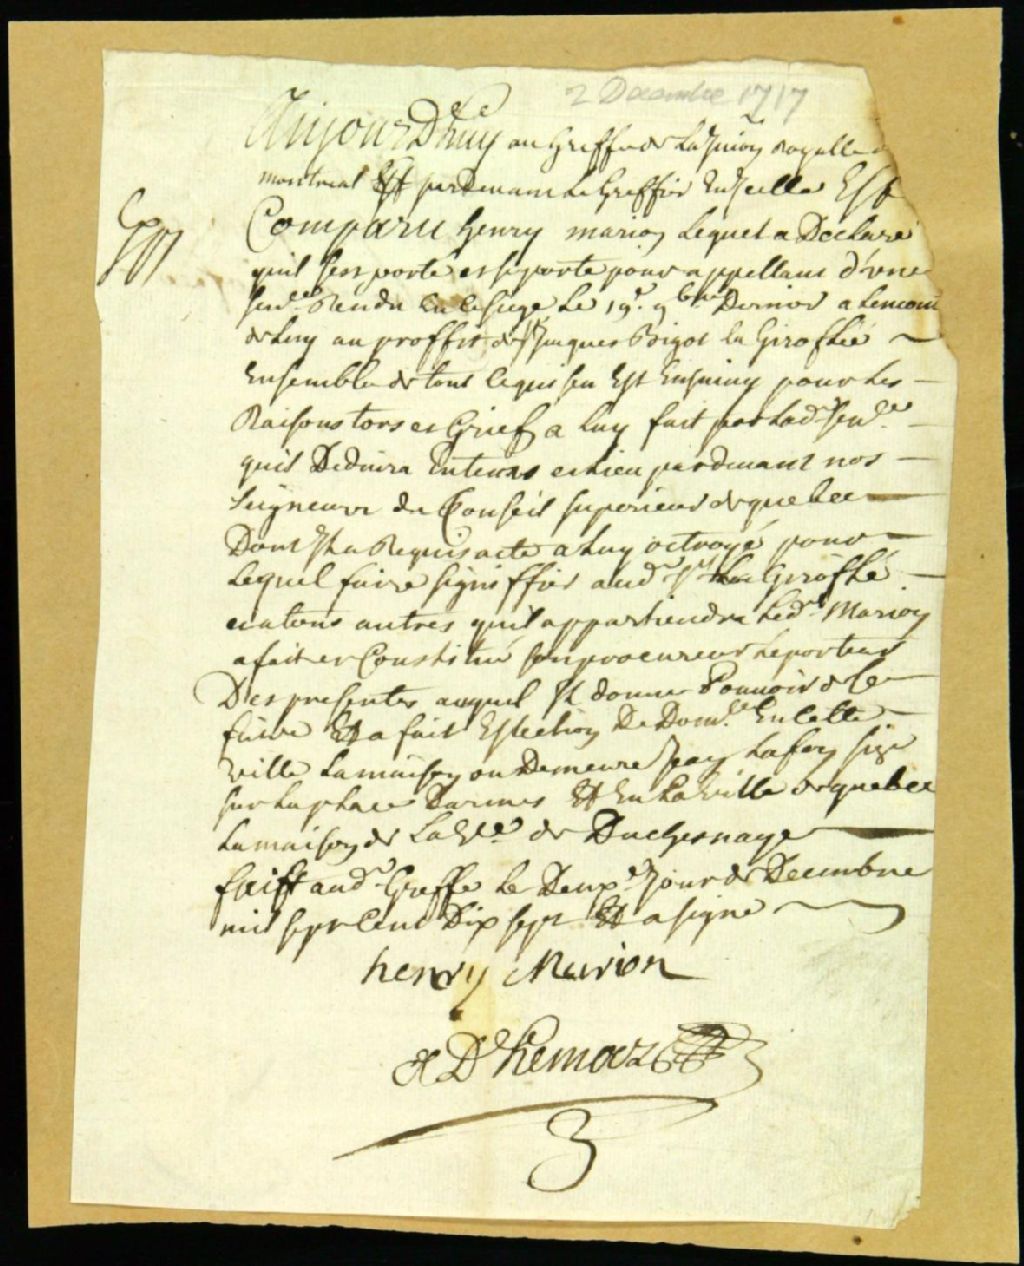 2 Decembre 1717
Aujourd'huy au Greffe de la Jurion Royalle de
montreal Et pardevant Le Greffier En Jcelle Est
Comparu henry marion Lequel a Declaré
quil sest porté et se porte pour appellant d'une
sence Rendu En ce siege Le 19e 9bre Dernier a lencont
de luy au proffit de Jacques Bigot La Giroflée
Ensemble de tout ce qui sen Est Ensuivy pour Les
Raisons tors et Grief a Luy fait par Lade sence
quil Deduira En tems et lieu pardevant nos
Seigneurs du Conseil superieur de quebec
Dont Jl a Requis acte a Luy octroyé pour
Lequel faire signiffier audt Sr La Giroflé
et a tous autres quil appartiendra Ledt Marion
a fait et Constitué son procureur Le porteur
Des presentes auquel Jl donne Pouvoir de ce
faire Et a fait Eslection De Domle En cette
ville La maison ou Demeure Jean Lafon size
sur La place Darmes Et En La ville de quebec
La maison de La Ve de Duchesnaye
faist audt Greffe Le Deuxe Jour de Decembre
mil sept Cent Dix sept Et a signé
henry Marion